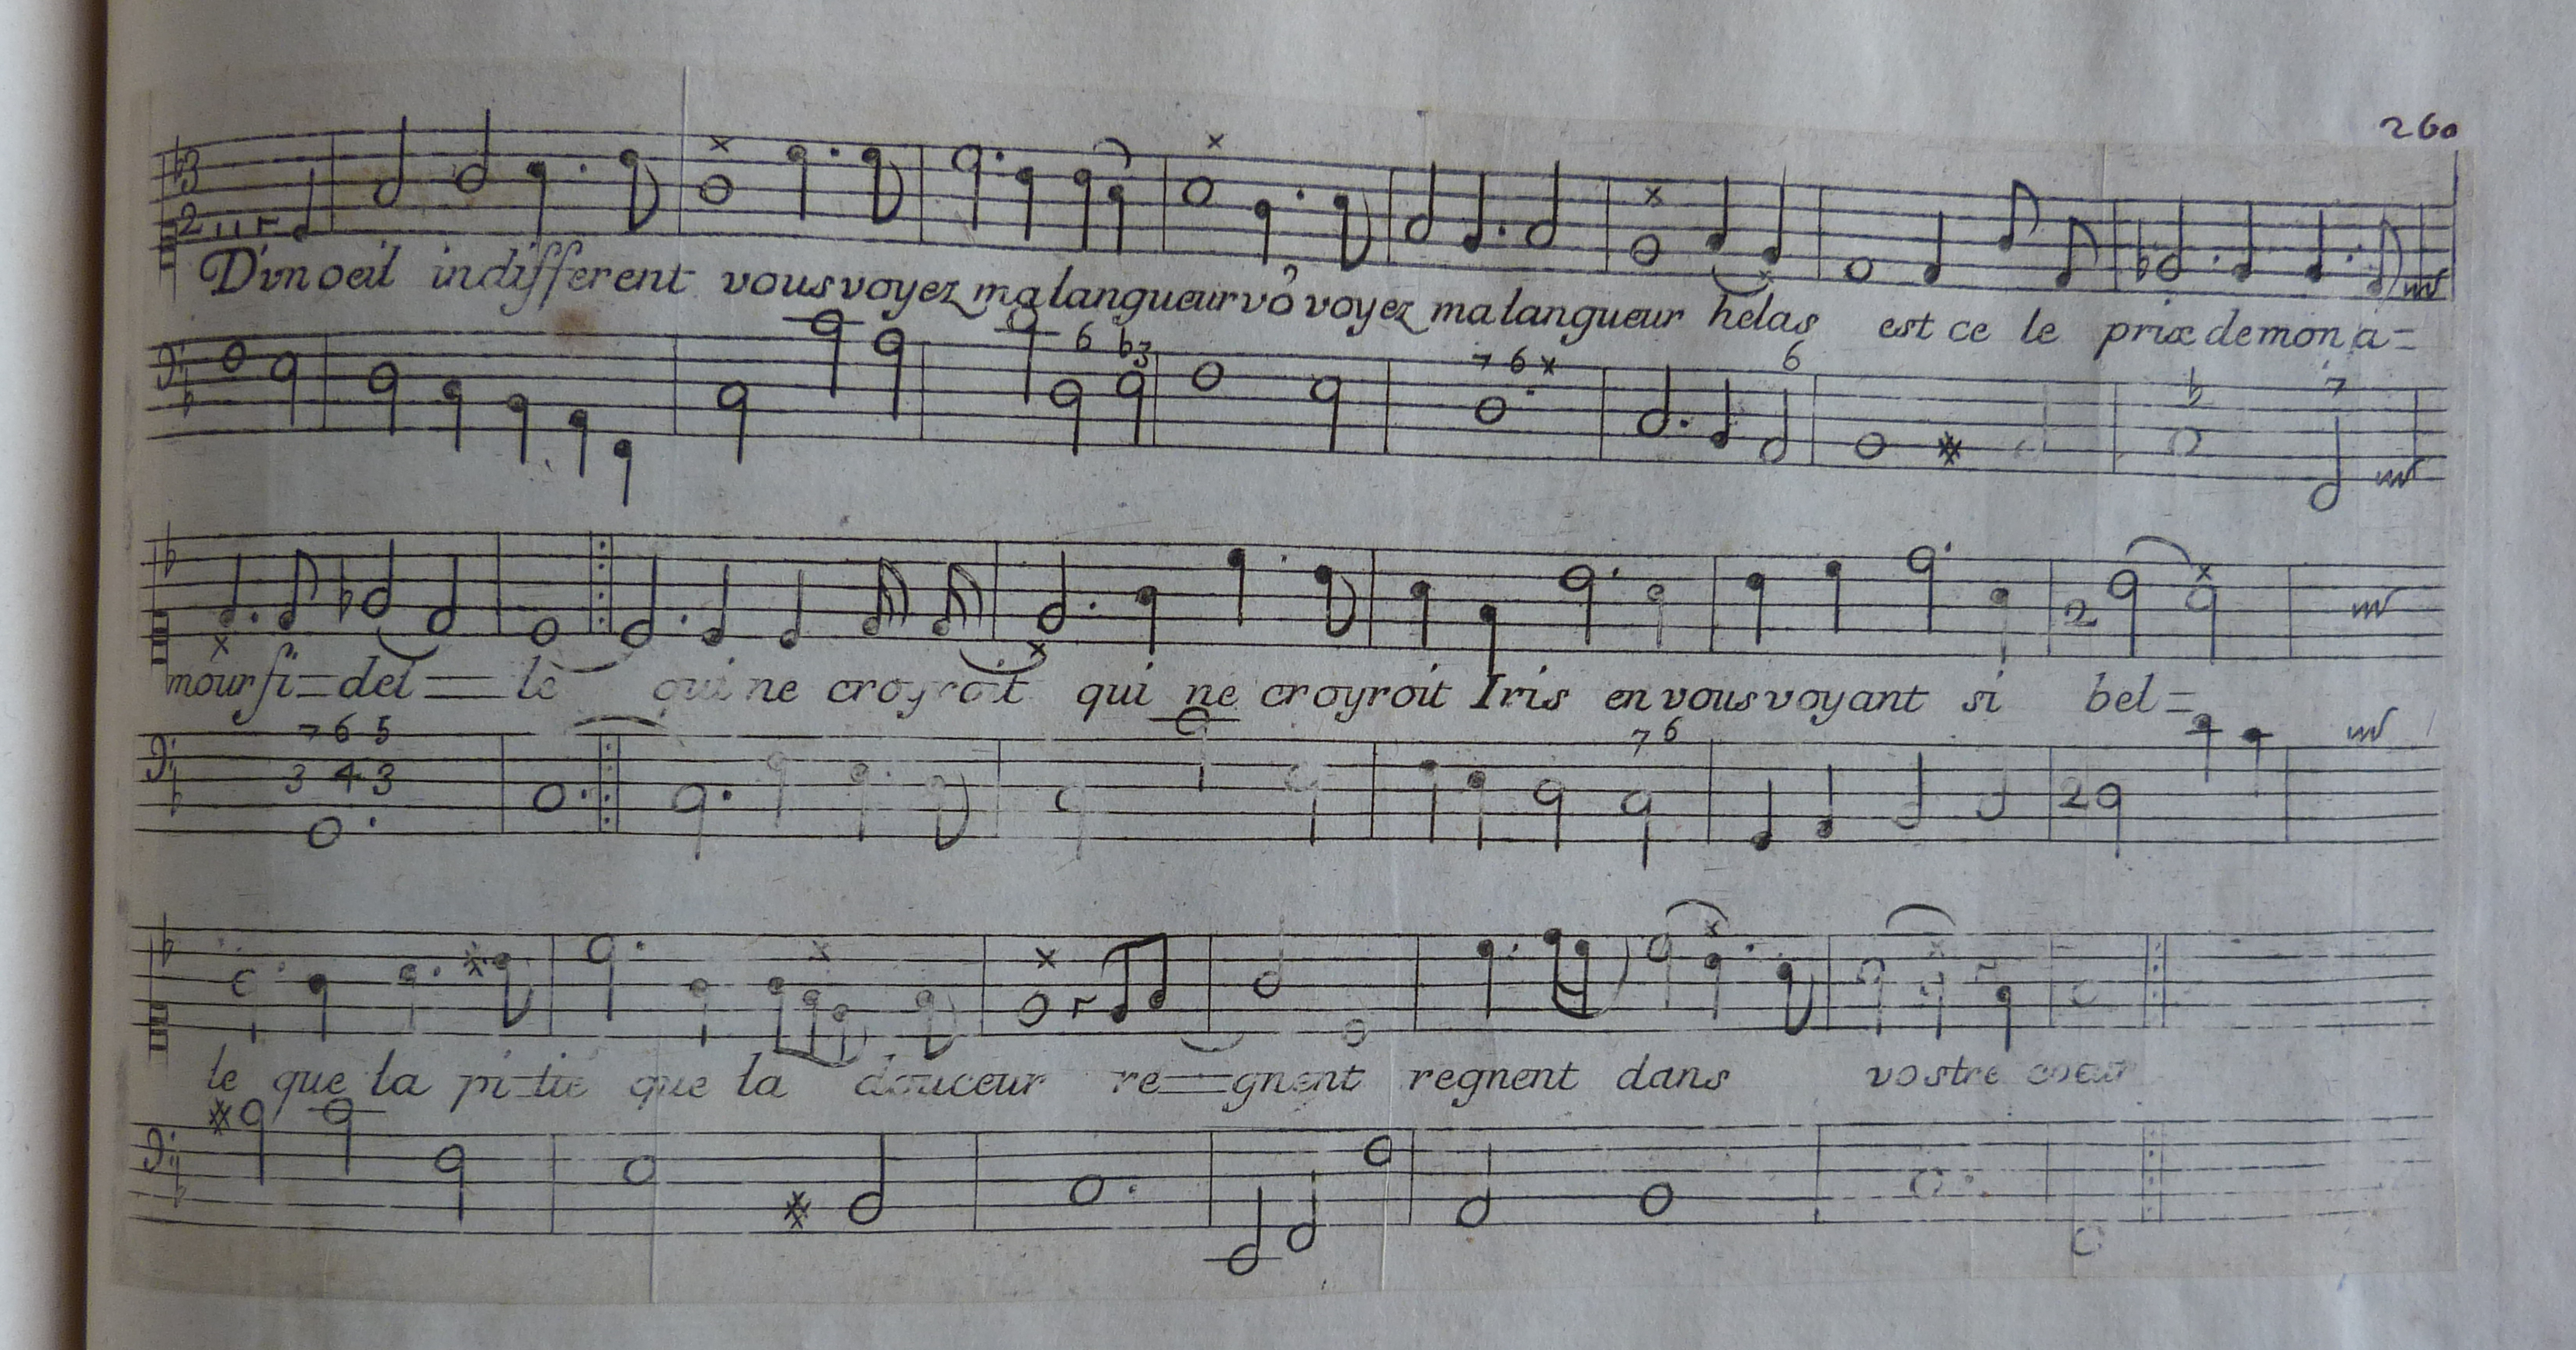 260
3
2
D'un oeil indifferent vous voyez ma langueur vô voyez ma langueur helas est ce le prix de mon a=
6 b3 7 6 x 6 b 7
mour fi=del=le qui ne croyroit qui ne croyroit Iris en vous voyant si bel=
7 6 5 7 6
3 4 3
2
le que la pi=tie que la douceur re=gnent regnent dans vostre coeur